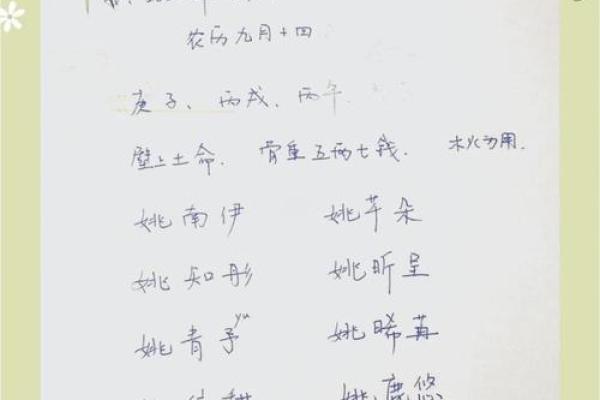 农历九月十四
庚子、丙戌、丙午
壁上土命. 骨重五两七钱. 木火为用.
姚南伊 姚芊朵
姚知彤 姚昕呈
yu
姚青予 姚晞苒
姚鹿悠